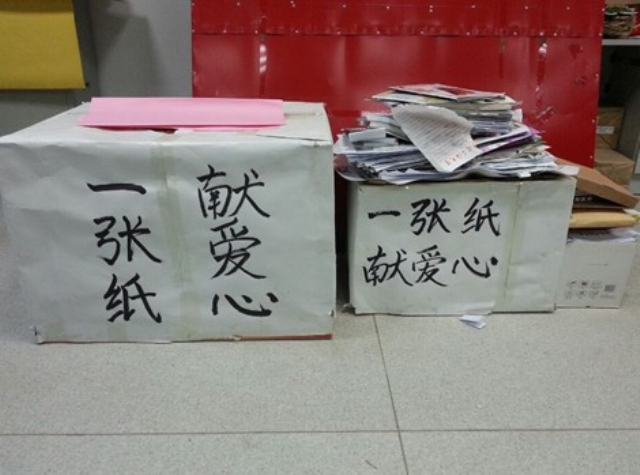 一张纸
献爱心
一张纸
献爱心